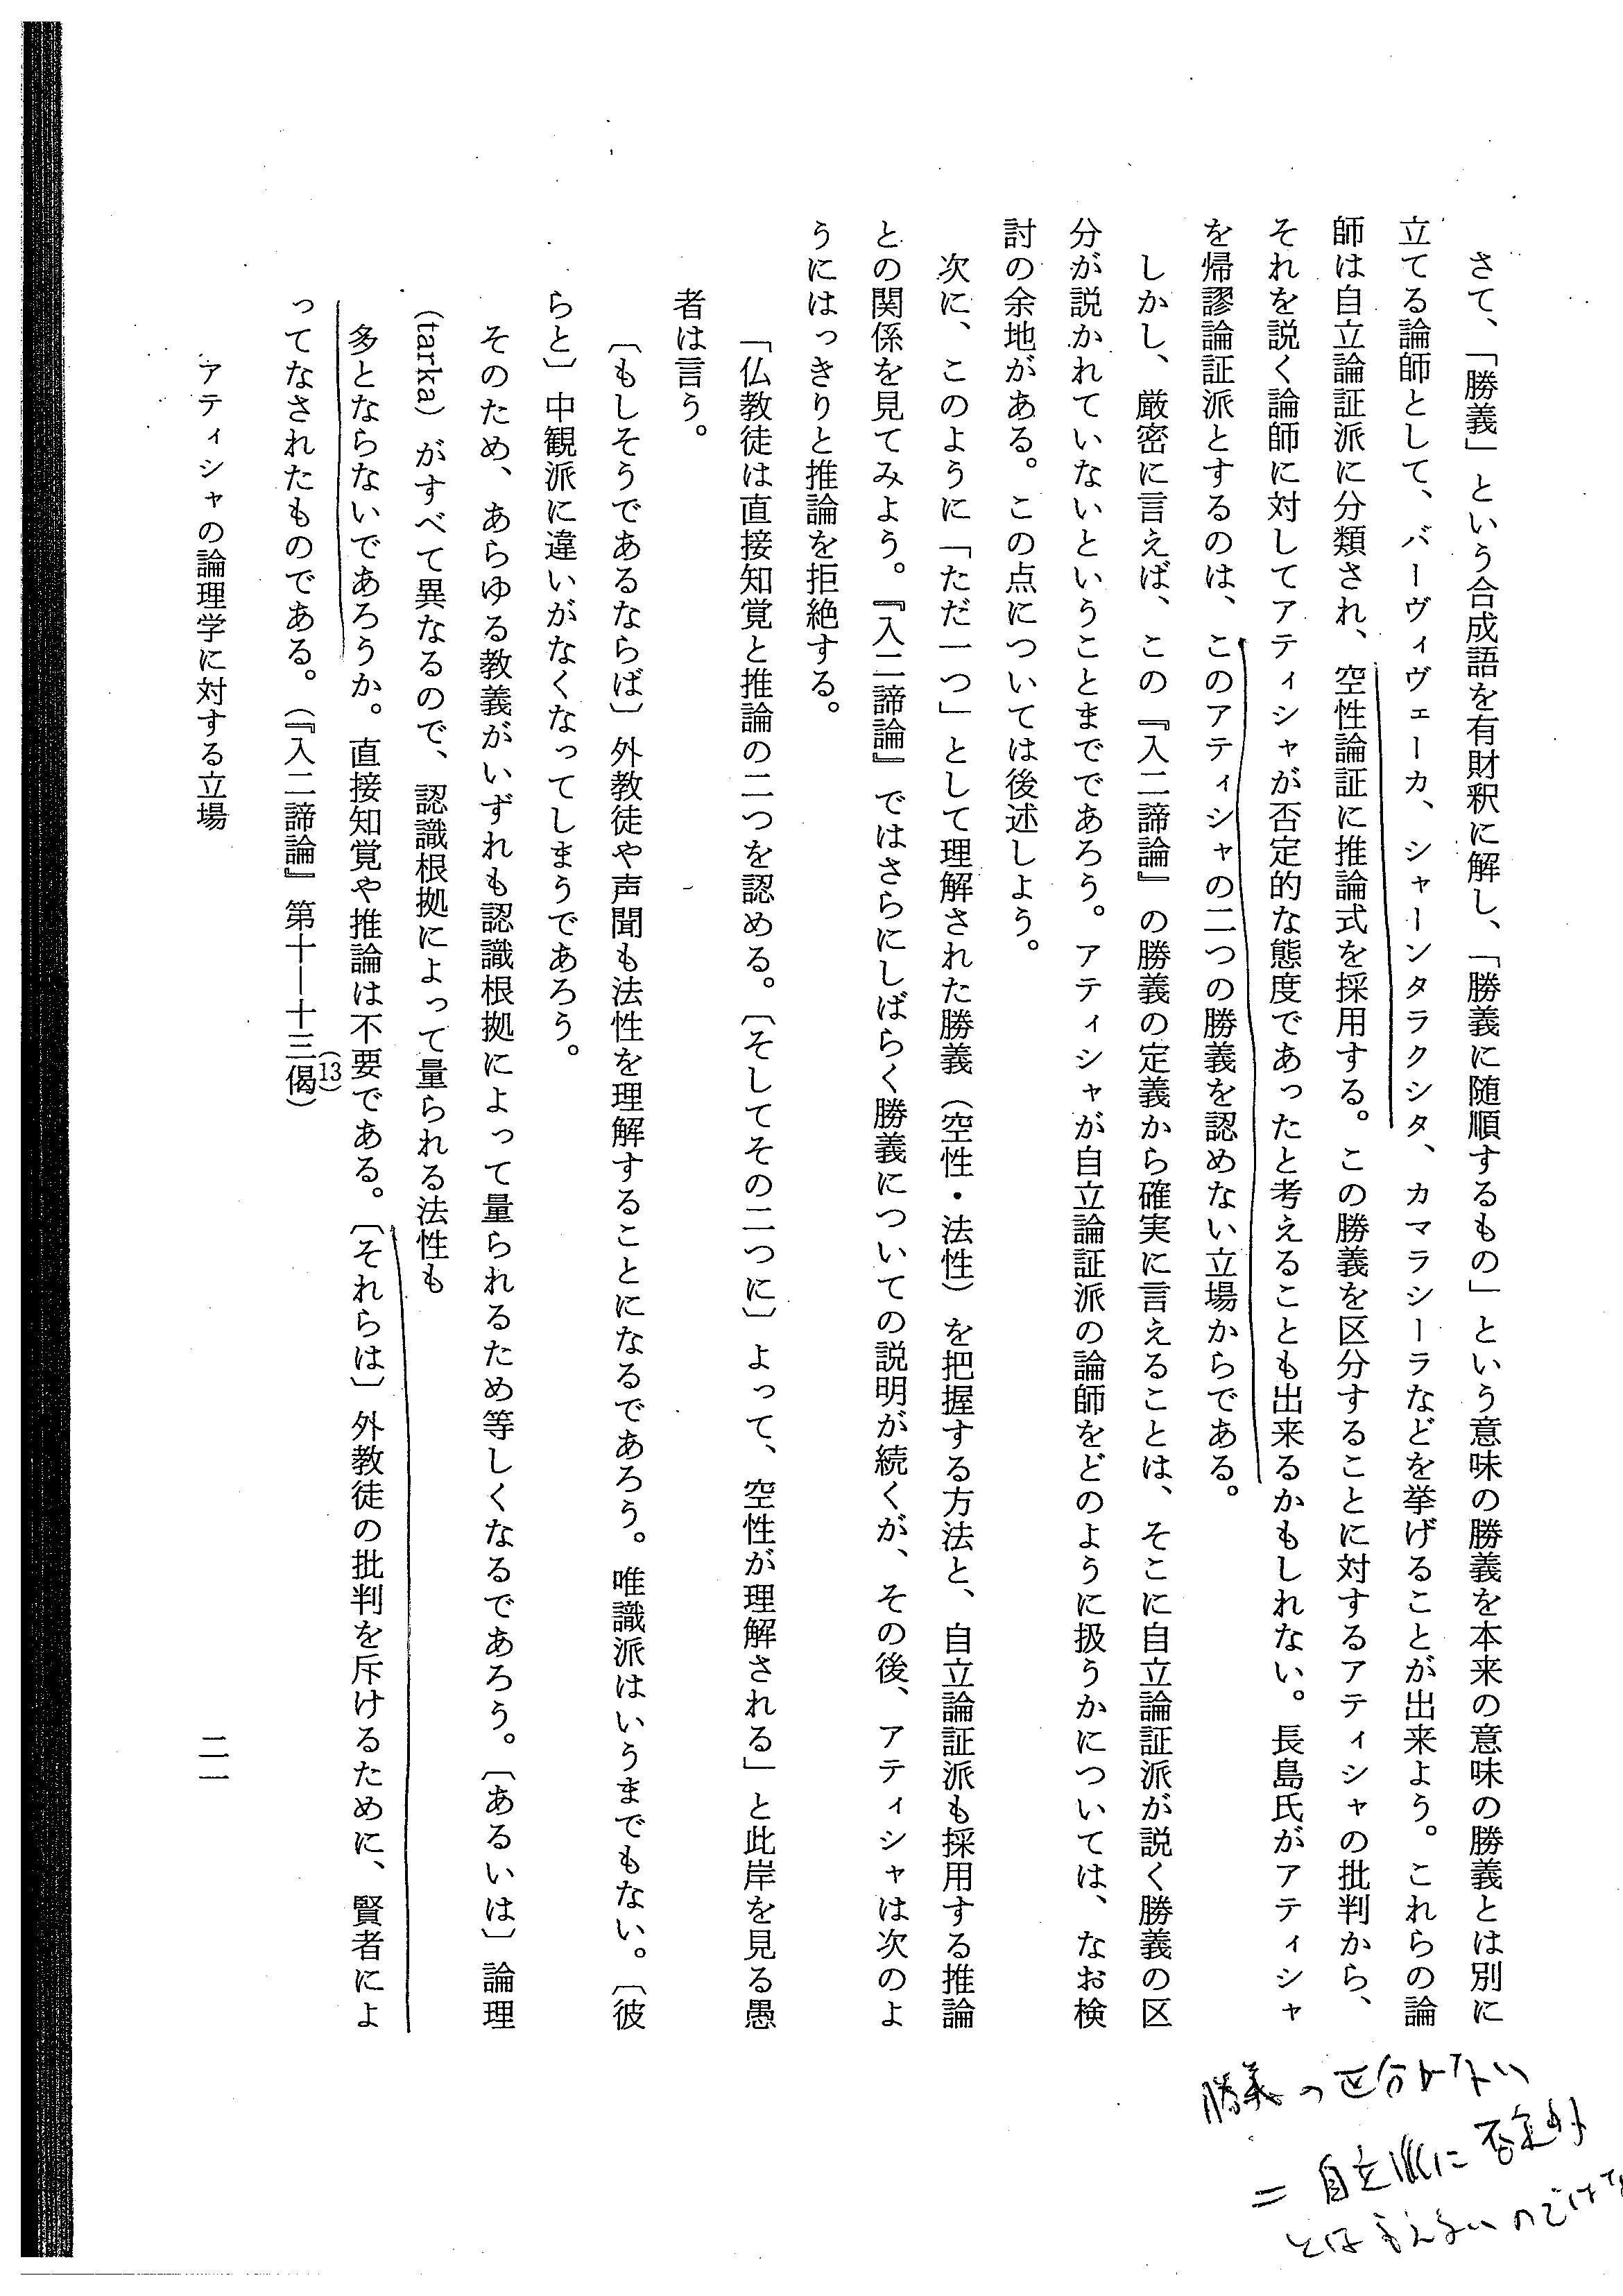 さて、「勝義」という合成語を有財釈に解し、「勝義に随順するもの」という意味の勝義を本来の意味の勝義とは別に
立てる論師として、バーヴィヴェーカ、シャーンタラクシタ、カマラシーラなどを挙げることが出来よう。これらの論
師は自立論証派に分類され、空性論証に推論式を採用する。この勝義を区分することに対するアティシャの批判から、
それを説く論師に対してアティシャが否定的な態度であったと考えることも出来るかもしれない。長島氏がアティシャ
を帰謬論証派とするのは、このアティシャの二つの勝義を認めない立場からである。
しかし、厳密に言えば、この『入二諦論』の勝義の定義から確実に言えることは、そこに自立論証派が説く勝義の区
分が説かれていないということまでであろう。アティシャが自立論証派の論師をどのように扱うかについては、なお検
討の余地がある。この点については後述しよう。
次に、このように「ただ一つ」として理解された勝義（空性・法性）を把握する方法と、自立論証派も採用する推論
との関係を見てみよう。『入二諦論』ではさらにしばらく勝義についての説明が続くが、その後、アティシャは次のよ
うにはっきりと推論を拒絶する。
「仏教徒は直接知覚と推論の二つを認める。〔そしてその二つに〕よって、空性が理解される」と此岸を見る愚
者は言う。
〔もしそうであるならば〕外教徒や声聞も法性を理解することになるであろう。唯識派はいうまでもない。〔彼
らと〕中観派に違いがなくなってしまうであろう。
そのため、あらゆる教義がいずれも認識根拠によって量られるため等しくなるであろう。〔あるいは〕論理
（tarka）がすべて異なるので、認識根拠によって量られる法性も
多とならないであろうか。直接知覚や推論は不要である。〔それらは〕外教徒の批判を斥けるために、賢者によ
ってなされたものである。（『入二諦論』第十―十三偈）(13)
アティシャの論理学に対する立場
二一
勝義の区分がない
＝自立派に否定的
とは言えないのでは